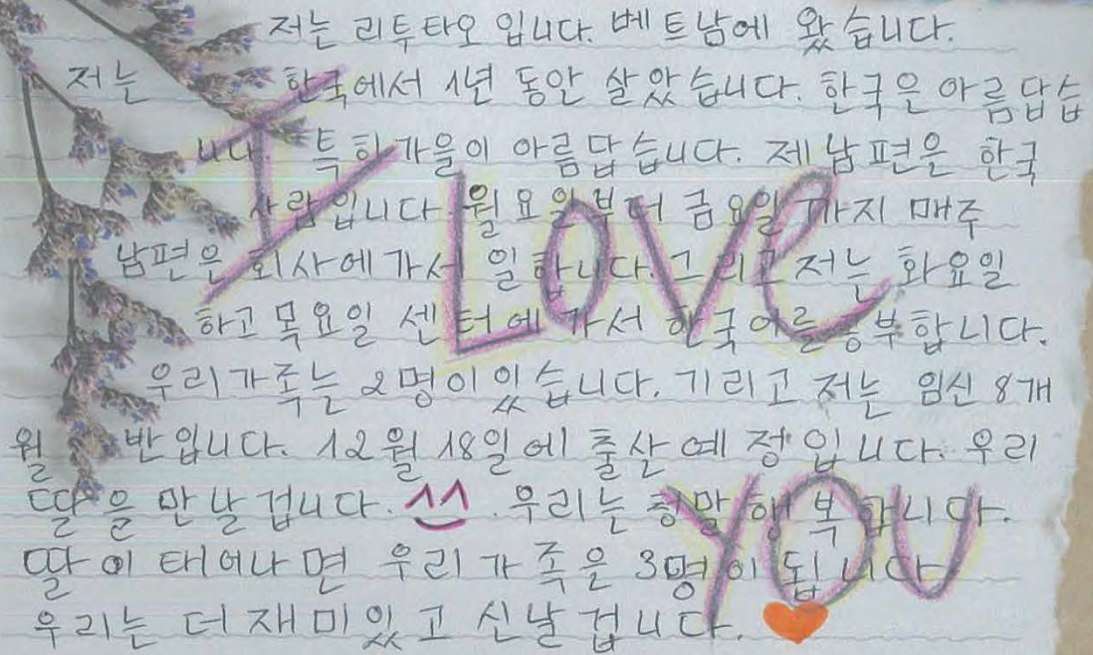 저는 리투타오 입니다. 베트남에 왔습니다.
저는 한국에서 1년 동안 살았습니다. 한국은 아름답습
니다. 특히 가을이 아름답습니다. 제 남편은 한국
사람입니다. 월요일부터 금요일까지 매주
남편은 회사에 가서 일합니다. 그리고 저는 화요일
하고 목요일 센터에 가서 한국어를 공부합니다.
우리 가족는 2명이 있습니다. 기리고 저는 임신 8개
월 반입니다. 12월 18일에 출산 예정입니다. 우리
딸을 만날 겁니다. ^^. 우리는 정말 행복합니다.
딸이 태어나면 우리 가족은 3명이 됩니다
우리는 더 재미있고 신날 겁니다.
I LOVE YOU